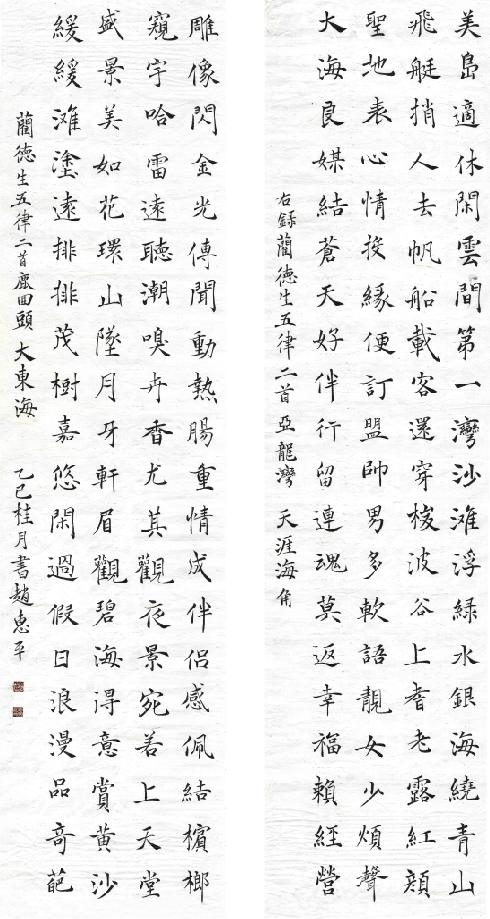 美島適休閑雲間第一灣沙灘浮綠水銀海繞青山
飛艇捎人去帆船載客還穿梭波谷上耆老露紅顏
聖地表心情投緣便訂盟帥男多軟語靚女少煩聲
大海良媒結蒼天好伴行留連魂莫返幸福賴經營
右録藺德生五律二首亞龍灣 天涯海角
雕像閃金光傳聞動熱腸重情成伴侶感佩結檳榔
窺宇哈雷遠聽潮嗅卉香尤其觀夜景宛若上天堂
盛景美如花環山墜月牙軒眉觀碧海淂意賞黄沙
緩緩灘塗遠排排茂樹嘉悠閑過假日浪漫品奇葩
藺德生五律二首鹿回頭 大東海 乙巳桂月書趙惠平